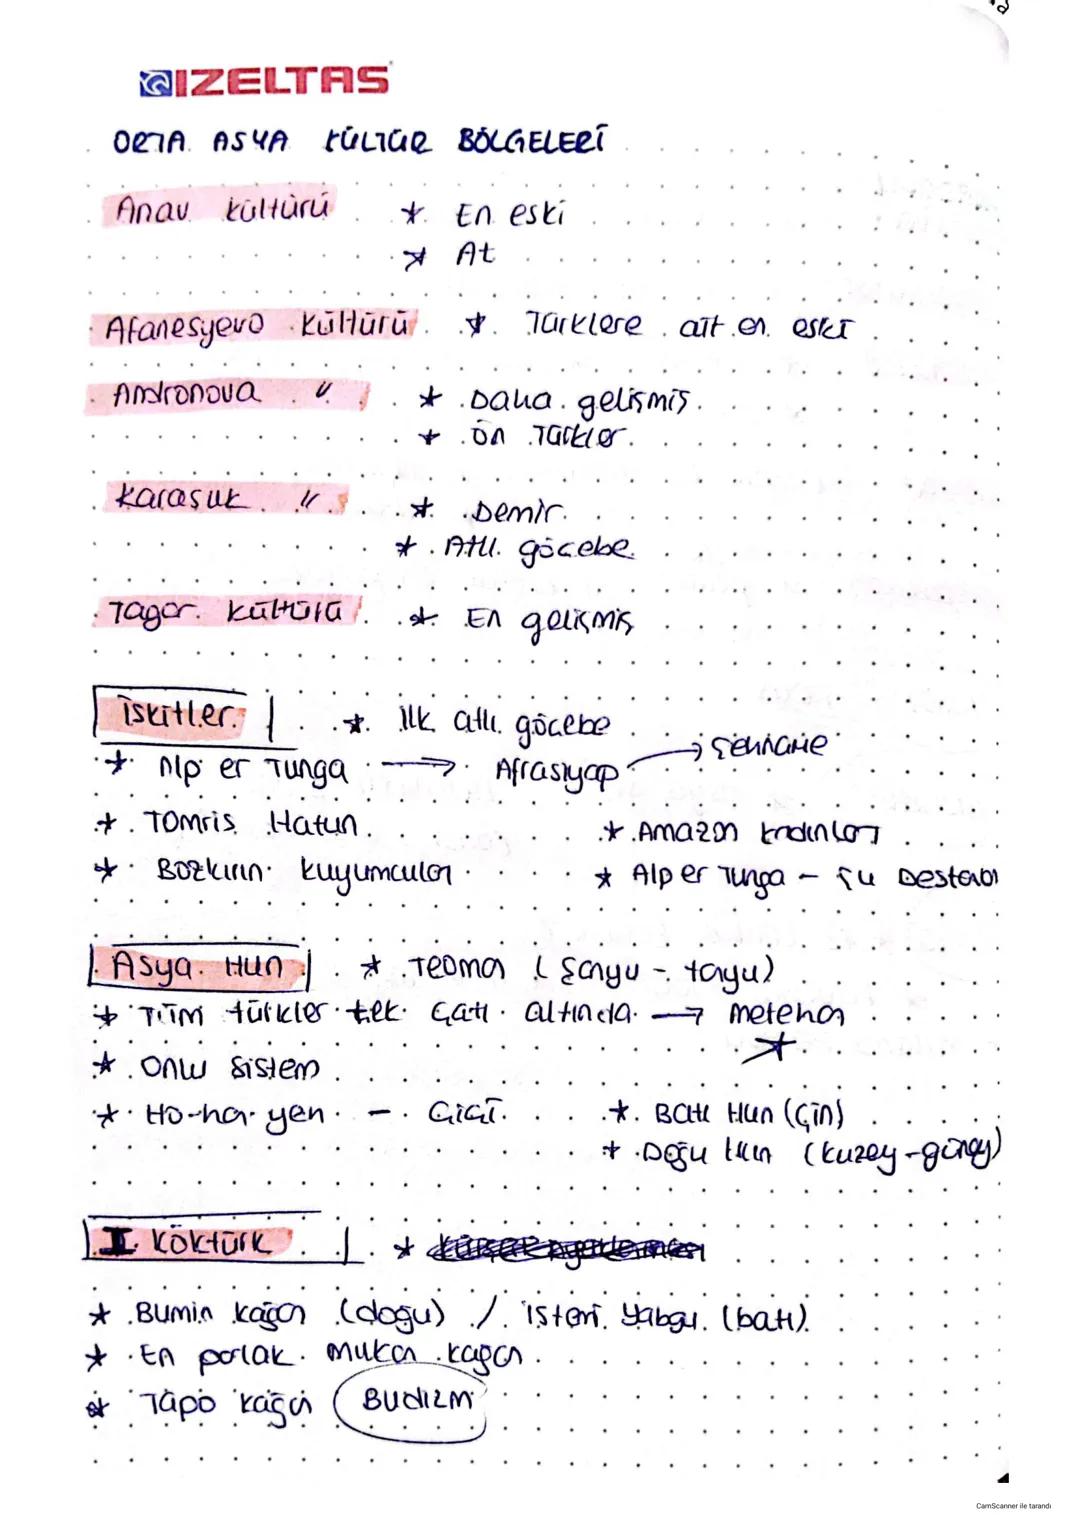 IZELTAS
ORTA ASYA KÜLTÜR BÖLGELERİ
Anav kültürü * En eski
* At
Afanesyevo kültürü * Türklere ait en eski
Andronova " * Daha gelişmiş
* Ön Türkler
Karasuk " * Demir
* Atlı göçebe
Tagar kültürü * En gelişmiş
İskitler * ilk atlı göçebe
* Alp er Tunga → Afrasiyap → Şehname
* Tomris Hatun * Amazon kadınları
* Bozkırın kuyumcuları * Alp er Tunga - Şu Destanı
Asya Hun * Teoman (Şanyu - tanyu)
* Tüm türkler tek çatı altında → metehan
*
* Onlu sistem
* Ho-han yen - Çiçi * Batı Hun (Çin)
* Doğu Hun (kuzey-güney)
I. Köktürk *
* Bumin kağan (doğu) / istemi Yabgu (batı)
* En parlak mukan kağan
* Tapo kağan Budizm
CamScanner ile tarandı